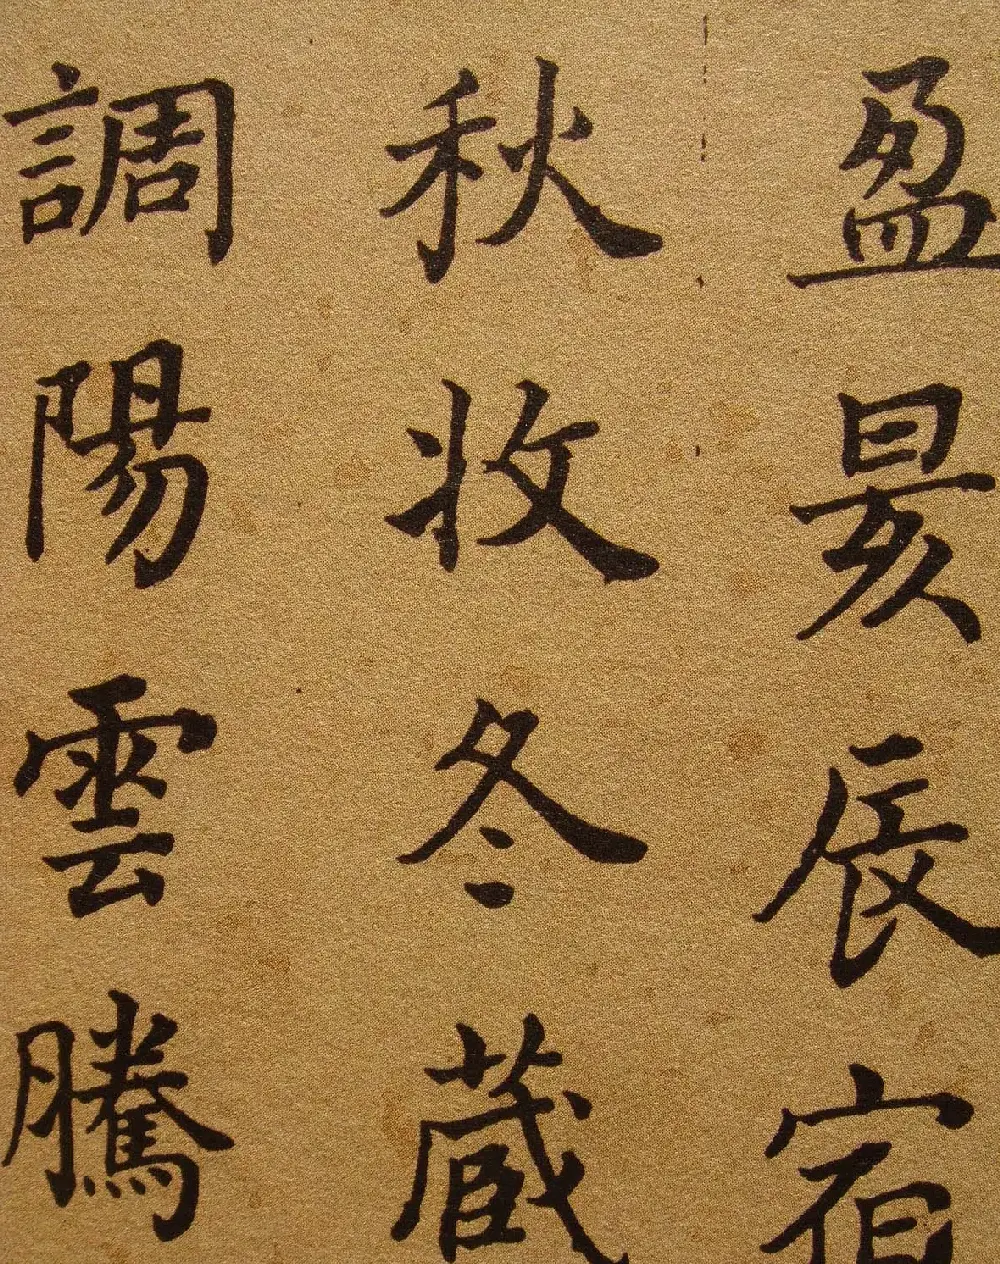 盈昃辰宿
秋收冬蔵
調陽雲騰